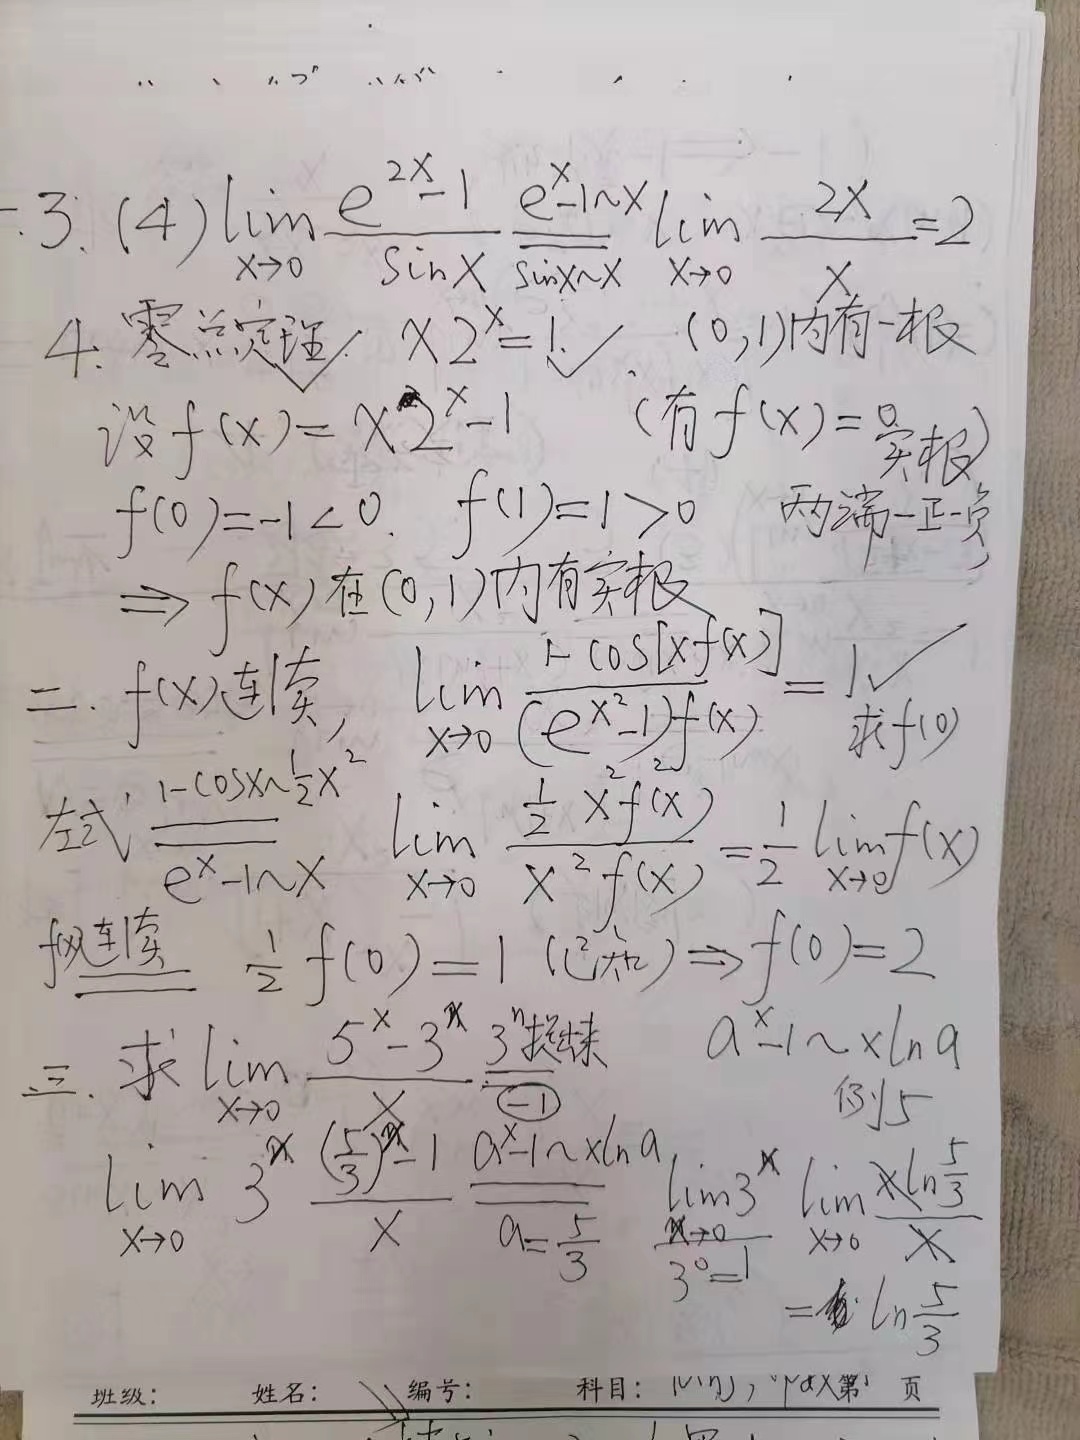 3. (4) lim x→0 (e^{2x}-1)/(sinx) = (e^x-1~x, sinx~x) lim x→0 2x/x = 2
4. 零点定理. x2^x=1. (0,1)内有一根
设f(x)=x2^x-1 (有f(x)=0实根)
f(0)=-1<0. f(1)=1>0 两端一正一负
⇒f(x)在(0,1)内有实根
二. f(x)连续, lim x→0 (1-cos[xf(x)])/((e^{x^2}-1)f(x)) = 1 求f(0)
左式 = (1-cosx~1/2x^2, e^x-1~x) lim x→0 (1/2 x^2f^2(x))/(x^2f(x)) = 1/2 lim x→0 f(x)
f(x)连续 = 1/2 f(0)=1 (已知)⇒f(0)=2
三. 求 lim x→0 (5^x-3^x)/x = (3^n 提出来, -1) a^x-1~xlna
例5
lim x→0 3^x ((5/3)^x-1)/x = (a^x-1~xlna, a=5/3) lim x→0 3^x lim x→0 (xln5/3)/x
3^0=1
= ln 5/3
班级: 姓名: 编号: 科目: 第 页